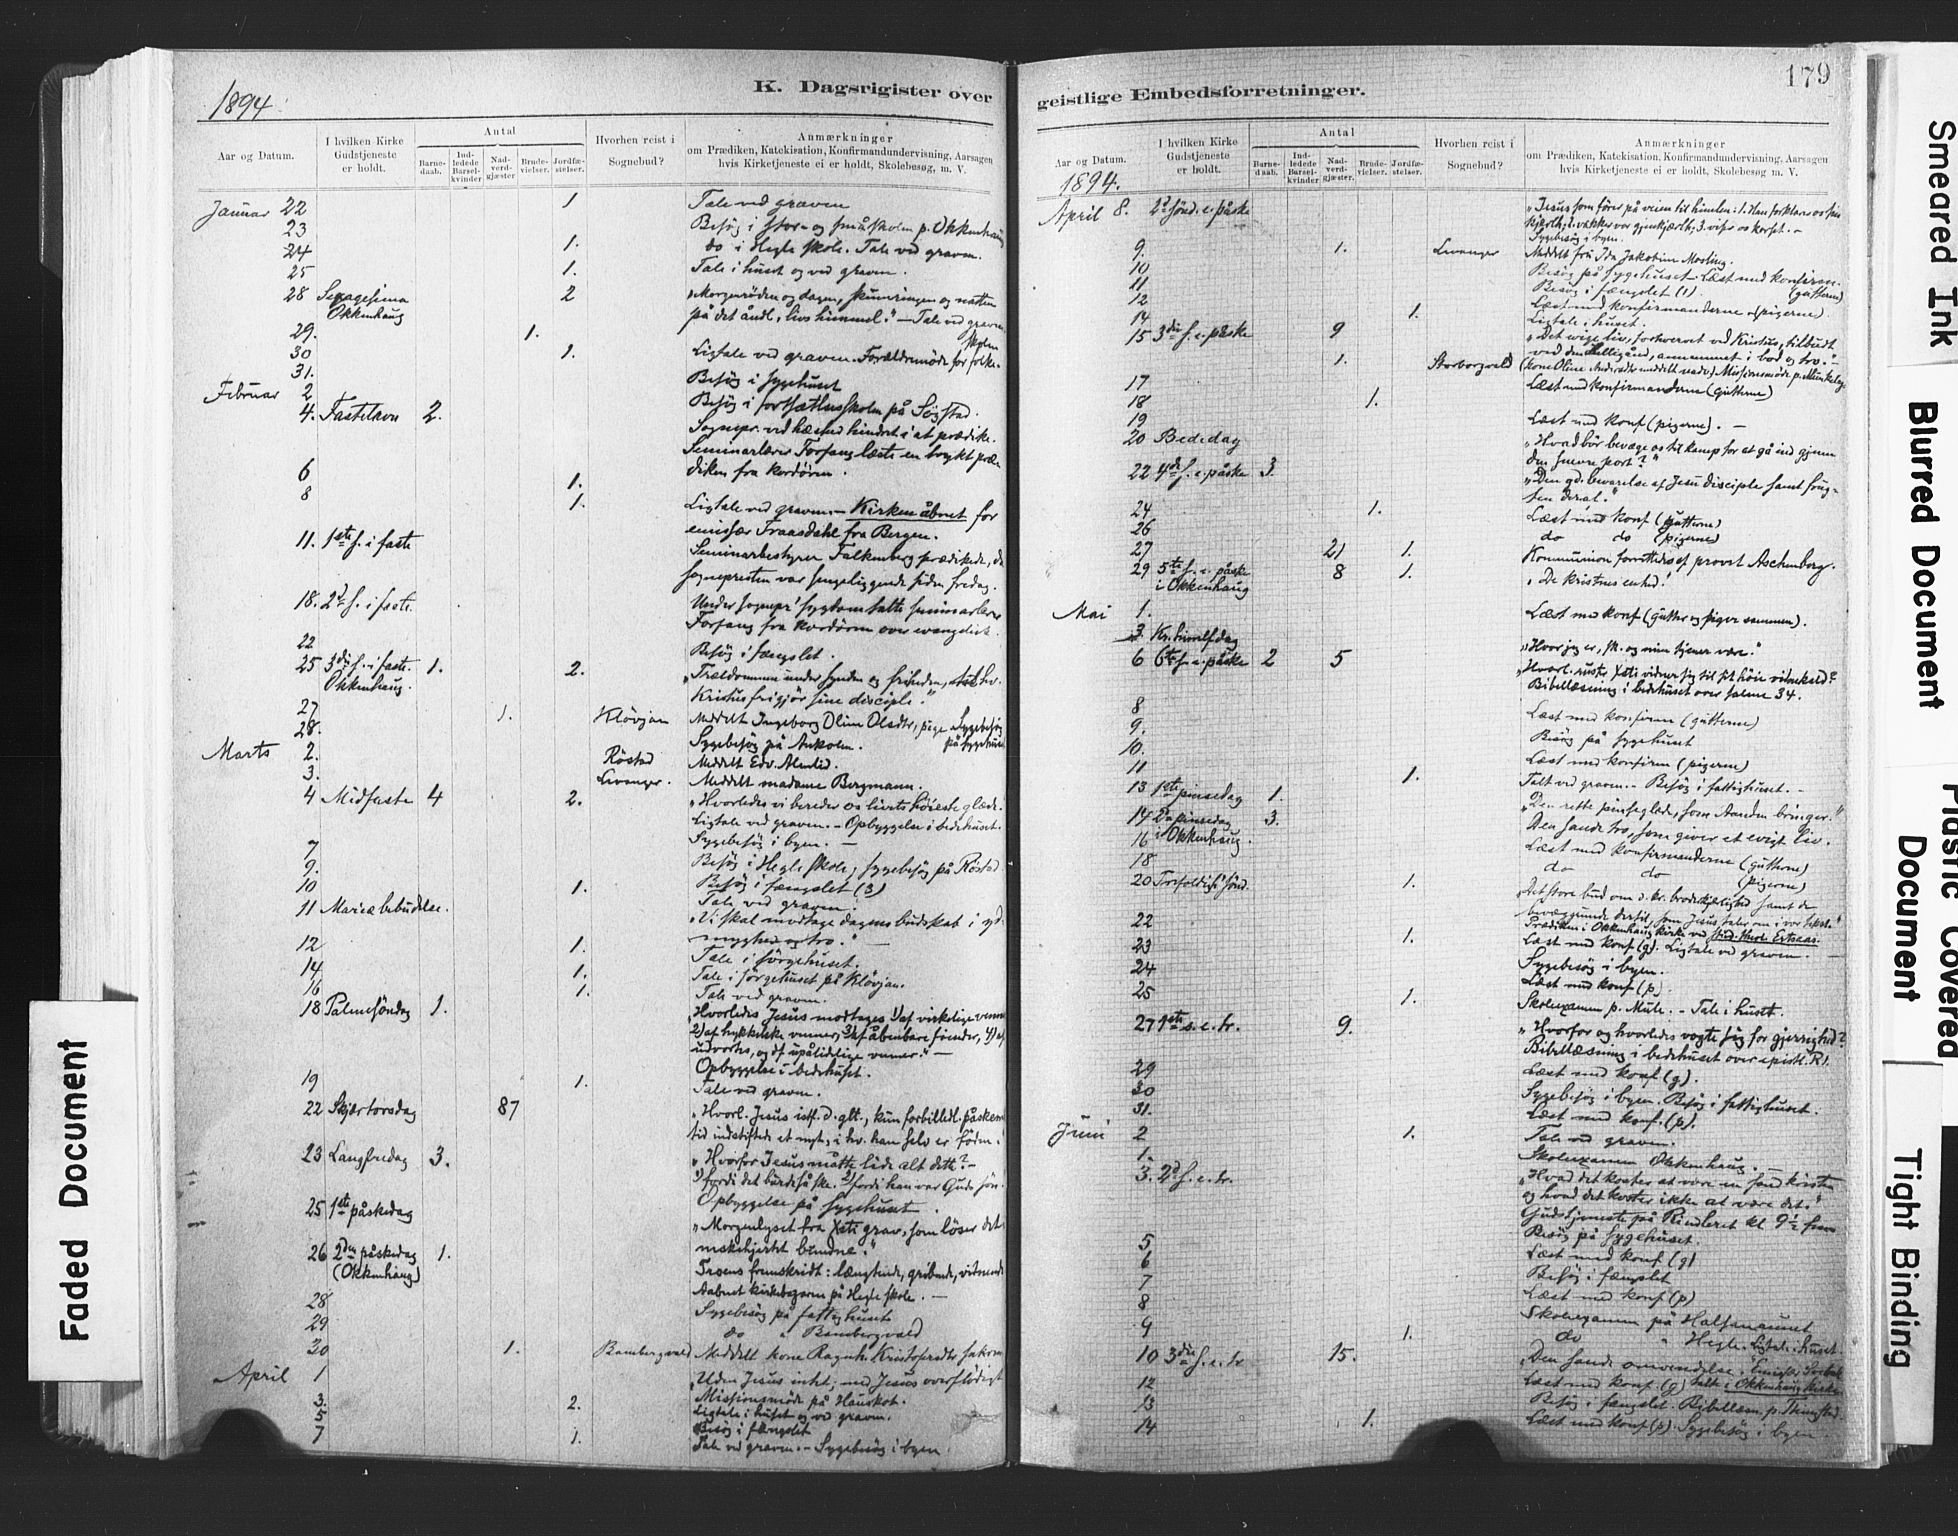 1894.
K. Dagsrigister over
Aar og Datum.
I hvilken Kirke Gudstjeneste er holdt.
Antal
Barne-daab.
Ind-ledede Barsel-kvinder
Nad-verd-gjæster.
Brude-vielser.
Jordfæ-stelser.
Hvorhen reist i Sognebud?
Anmærkninger
om Prædiken, Katekisation, Konfirmandundervisning, Aarsagen
hvis Kirketjeneste ei er holdt, Skolebesøg, m. V.
Januar 22 1 Tale ved graven
23 Besøg i stor- og småskolen p. Okkenhaug
24 1. do i Hegle skole. Tale ved graven.
25 1. Tale i huset og ved graven.
28 Sexagesima 2 "Morgenrøden og dagen, skumringen og natten
Okkenhaug på det åndl. livs himmel." – Tale ved graven.
29. 1.
30 1. Ligtale ved graven. Forældremøde for folkeskolen
31. Besøg i sygehuset
Februar 2 Besøg i fortsættelsesskolen på
4. Fastelavn 2. Sognepr. ved hæshed hindret i at prædike.
Seminarlærer Forfang læste en trykt præ-
diken fra kordøren.
6 1.
8 1. Ligtale ved graven. – Kirken åbnet for
emissær Traasdahl fra Bergen.
11. 1ste s. i faste Seminarbestyrer Falkenberg prædikede, da
sognepresten var sengeliggende siden fredag.
18. 2d s. i faste Under sognepr. sygdom talte seminarlærer
Forfang fra kordøren over evangeliet.
22 Besøg i fængslet.
25 3die s. i faste. 1. 2. "Trældommen under synden og friheden,
Okkenhaug. Kristus frigjør sine disciple".
27 1. Kløvjan Meddelt Ingeborg Oline Olsdtr, pige. Sygebesøg
28. Sygebesøg på på sygehuset
Marts 2. Røstad Meddelt Edv. Almlid.
3. Levanger. Meddelt madame Bergmann.
4 Midfaste 4 2. "Hvorledes vi bereder os livets høieste glæde.
Ligtale ved graven. – Opbyggelse i bedehuset.
7 Sygebesøg i byen. –
9. Besøg i Hegle skole, sygebesøg på Røstad
10 1. Besøg i fængslet (3)
11 Mariæ bebudelse. Tale ved graven.
"Vi skal modtage dagens budskab i yd-
myghed og tro." –
12 1. Tale i sørgehuset.
14 1. Tale i sørgehuset på Kløvjan.
16 1. Tale ved graven.
18 Palmesøndag 1. "Hvorledes Jesus modtages 1) af virkelige venner
2) af hykkelske venner, 3) af åbenbare fiender, 4) af
udvortes, og af upålidelige venner." –
Opbyggelse i bedehuset.
19 1. Tale ved graven.
22 Skjærtorsdag 87 "Hvorl. Jesus istf. d. glt., kun forbilledl. påskem
tid indstiftede et nyt, i hv. han selv er
23 Langfredag 3. "Hvorfor Jesus måtte lide alt dette? –
1) fordi det burde så ske. 2) fordi han var Guds søn.
Opbyggelse på sygehuset.
25 1ste påskedag "Morgenlyset fra Xsti grav, som løser det
mskehjertet bundne."
26 2den påskedag 1. Troens fremskridt: længtende, gribende, vitnende
(Okkenhaug) Aabnet kirkebygaren på Hegle skole. –
28 Sygebesøg på fattighuset
29 do " Bambergvald
30 1. Bambergvald Meddelt kone Ragnh. Kristofersdtr
April 1 "Uden Jesus intet; med Jesus overflødigt
3. 2. Missionsmøde på Hauskot.
5. Ligtale i huset og ved graven.
7 1. Besøg i fængslet
Tale ved graven. – Sygebesøg i byen.
geistlige Embedsforretninger.
179
Aar og Datum.
1894.
I hvilken Kirke Gudstjeneste er holdt.
Antal
Barne-daab.
Ind-ledede Barsel-kvinder
Nad-verd-gjæster.
Brude-vielser.
Jordfæ-stelser.
Hvorhen reist i Sognebud?
Anmærkninger
om Prædiken, Katekisation, Konfirmandundervisning, Aarsagen
hvis Kirketjeneste ei er holdt, Skolebesøg, m. V.
April 8. 2d sønd. e. påske "Jesus som fører på veien til himlen: 1. Han forklares os sin
kjærlh; 2. vækker vor gjenkjærlh; 3. viser os korset. –
Sygebesøg i byen.
9. 1. Levanger Meddelt fru Ida Jakobine Mosling.
10 Besøg på sygehuset. Læst med konfirm.
11 Besøg i fængslet (1). (gutterne)
12 Læst med konfirmanderne (pigerne).
14 1. Ligtale i huset.
15 3die s. e. påske 9 "Det evige liv, forhvervet ved Kristus, tilbudt
ved den Helligånd, annammet i bod og tro."
1. Storborgvald (kone Oline meddelt nadv.) Missionsmøde p. Munkeby
17 Læst med konfirmanderne (gutterne)
18 1.
19 Læst med konf (pigerne). –
20 Bededag "Hvad bør bevæge os til kamp for at gå ind gjennem
den snevre port?"
22 4de s. e. påske 3. "Den gd. bevarelse af Jesu disciple samt frug-
ten deraf."
24 1. Læst med konf (gutterne)
26 do do (pigerne)
27 21 1. Kommunion forrettedes af provst Aschenberg.
29 5te s. e. påske 8 1. "De kristnes enhed."
i Okkenhaug
Mai 1. Læst med konf (gutter og piger sammen).
3. Kr. himmelf.dag "Hvor jeg er, sk. og min tjener være."
6 6te s. e. påske 2 5 "Hvorl. ruster Xsti vidner sig til sit høie vitnekald?
Bibellæsning i bedehuset over salme 34.
8 Læst med konfirm (gutterne)
9. Besøg på sygehuset
10. Læst med konfirm (pigerne)
11 1. Talt ved graven. – Besøg i fattighuset. –
13 1ste pinsedag 1. "Den rette pinseglæde, som Aanden bringer."
14 2n pinsedag 3. Den sande tro, som giver et evigt liv.
i Okkenhaug.
16 Læst med konfirmanderne (gutterne)
18 do do (pigerne)
20 Trefoldigh. sønd. 1. "Det store bud om d. kr. broderkjærlighed samt de
bevæggrunde dertil, som Jesus taler om i vor tekst."
Prædiken i Okkenhaug kirke ved stud. theol. Ertsaas.
22
23 1. Læst med konf (g). Ligtale ved graven. –
24 Sygebesøg i byen.
25 1. Læst med konf (p).
Skolexamen p. Mule. – Tale i huset.
27 1ste s. e. tr. 9. "Hvorfor og hvorledes vogte sig for gjerrighed?
Bibellæsning i bedehuset over epistl. R1.
29 Læst med konf (g).
30 Sygebesøg i byen. Besøg i fattighuset.
31. Læst med konf. (p).
Juni 2 1. Tale ved graven.
1. Skolexamen Okkenhaug. –
3. 2d s. e. tr. "Hvad det koster at være en sand kristen
og hvad det koster ikke at være det."
Gudstjeneste på Rinleret kl 9½ form
5 Besøg på sygehuset.
6 Læst med konf (g)
7 Besøg i fængslet
8 Læst med konf (p)
9 1. Skolexamen på Halsanaunet
do " Hegle. Ligtale i huset.
10 3die s. e. tr 15. "Den sande omvendelse.
12 Læst med konf. (g) talte i Okkenhaug kirke
13 Besøg i fængslet. Bibellæsn. p.
14 1. Læst med konf (p). Sygebesøg i byen.
Faded Document
Smeared Ink
Blurred Document
Plastic Covered Document
Tight Binding